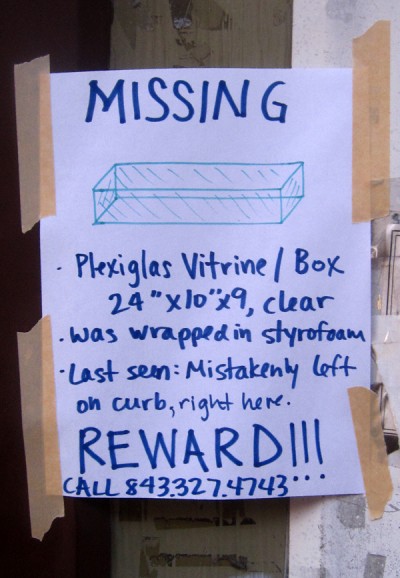 MISSING
· Plexiglas Vitrine / Box
24"x10"x9, clear
· was wrapped in styrofoam
· Last seen: Mistakenly left
on curb, right here.
REWARD!!!
CALL 843.327.4743